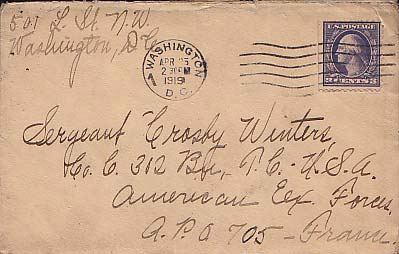 501 L. St. N.W.
Washington, D.C.
WASHINGTON
APR 25
2 30PM
1919
D.C.
U.S. POSTAGE
3 CENTS 3
Sergeant Crosby Winters,
Co. C. 312 Bn, T.C. - U.S.A.
American Ex. Forces.
A.P.O 705 - France.